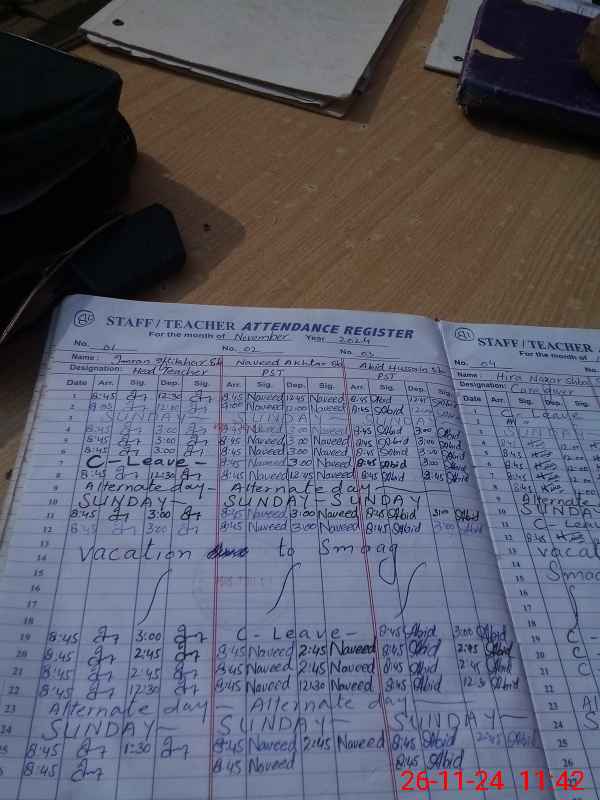 STAFF / TEACHER ATTENDANCE REGISTER
For the month of November Year 2024
No. 01 No. 02 No. 03
Name: Imran Iftikhar Sb Naveed Akhtar Sb Abid Hussain Sb
Designation: Head Teacher PST PST
Date Arr. Sig. Dep. Sig. Arr. Sig. Dep. Sig. Arr. Sig. Dep. Sig.
1 8:45 12:30 8:45 Naveed 12:45 Naveed 8:45 Abid 12:45 Abid
2 8:00 12:00 8:00 Naveed 12:00 Naveed 8:45 Abid
3 SUNDAY
4 3:00 8:45 Naveed 3:00 Naveed 8:45 Abid 3:00 Abid
5 8:45 3:00 8:45 Naveed 3:00 Naveed 8:45 Abid 3:00 Abid
6 8:45 3:00 8:45 Naveed 3:00 Naveed 8:45 Abid 3:00 Abid
7 C-Leave- 8:45 Naveed 3:00 Naveed 8:45 Abid 3:00 Abid
8 8:45 12:30 8:45 Naveed 12:45 Naveed 8:45 Abid Abid
9 Alternate day - Alternate day -
10 SUNDAY - SUNDAY - SUNDAY
11 8:45 3:00 8:45 Naveed 3:00 Naveed 8:45 Abid 3:00 Abid
12 8:45 3:00 8:45 Naveed 3:00 Naveed 8:45 Abid 3:00 Abid
13
14 vacation to Smoag
15
16
17
18
19 8:45 3:00 C-Leave- 8:45 Abid 3:00 Abid
20 8:45 2:45 8:45 Naveed 2:45 Naveed 8:45 Abid 2:45 Abid
21 8:45 2:45 8:45 Naveed 2:45 Naveed 8:45 Abid 2:45 Abid
22 8:45 12:30 8:45 Naveed 12:30 Naveed 8:45 Abid 12:30 Abid
23 Alternate day - Alternate day
24 SUNDAY - SUNDAY - SUNDAY
25 8:45 1:30 8:45 Naveed 2:45 Naveed 8:45 Abid 2:45 Abid
8:45 8:45 Naveed 8:45 Abid
STAFF / TEACHER
For the month of
No. 04
Name: Hira Nazar
Designation: Care Giver
Date Arr. Sig. Dep. Sig.
1 C- Leave
2
3
4
5 8:45 12:00
6 8:45 12:00
7 8:45 12:00
8 8:45 12:00
9 Alternate
10 SUNDAY
11 C-Leave
12 8:45
13 vacat
14
15 Smoa
16
17
18
19 C -
20 C -
21 C
22
23 Al
24 S
25
26
26-11-24 11:42